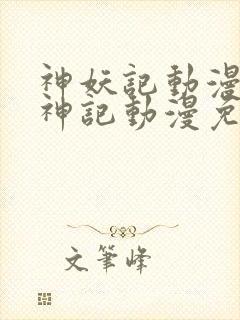 神妖記動漫
神記動漫免
文筆峰